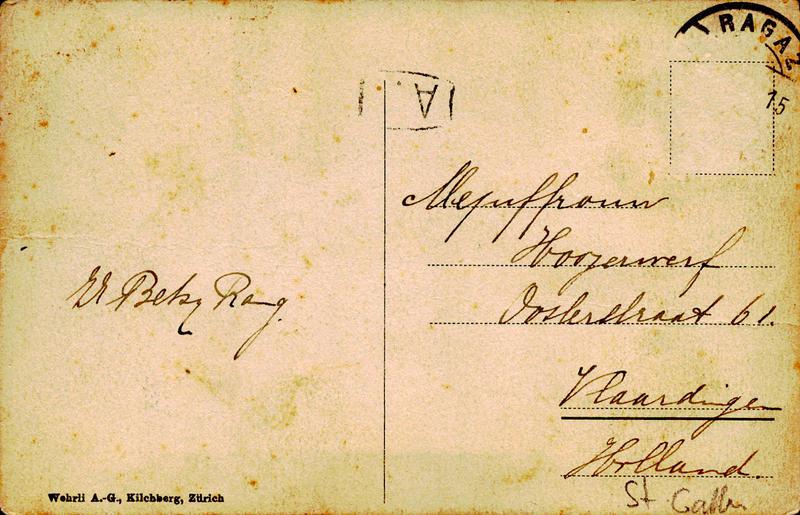 RAGAZ
15
A.
Mejuffrouw
Hoogerwerf
Oosterstraat 61.
Vlaardingen
Holland.
Betsy Rang.
Wehrli A.-G., Kilchberg, Zürich
St. Gallen